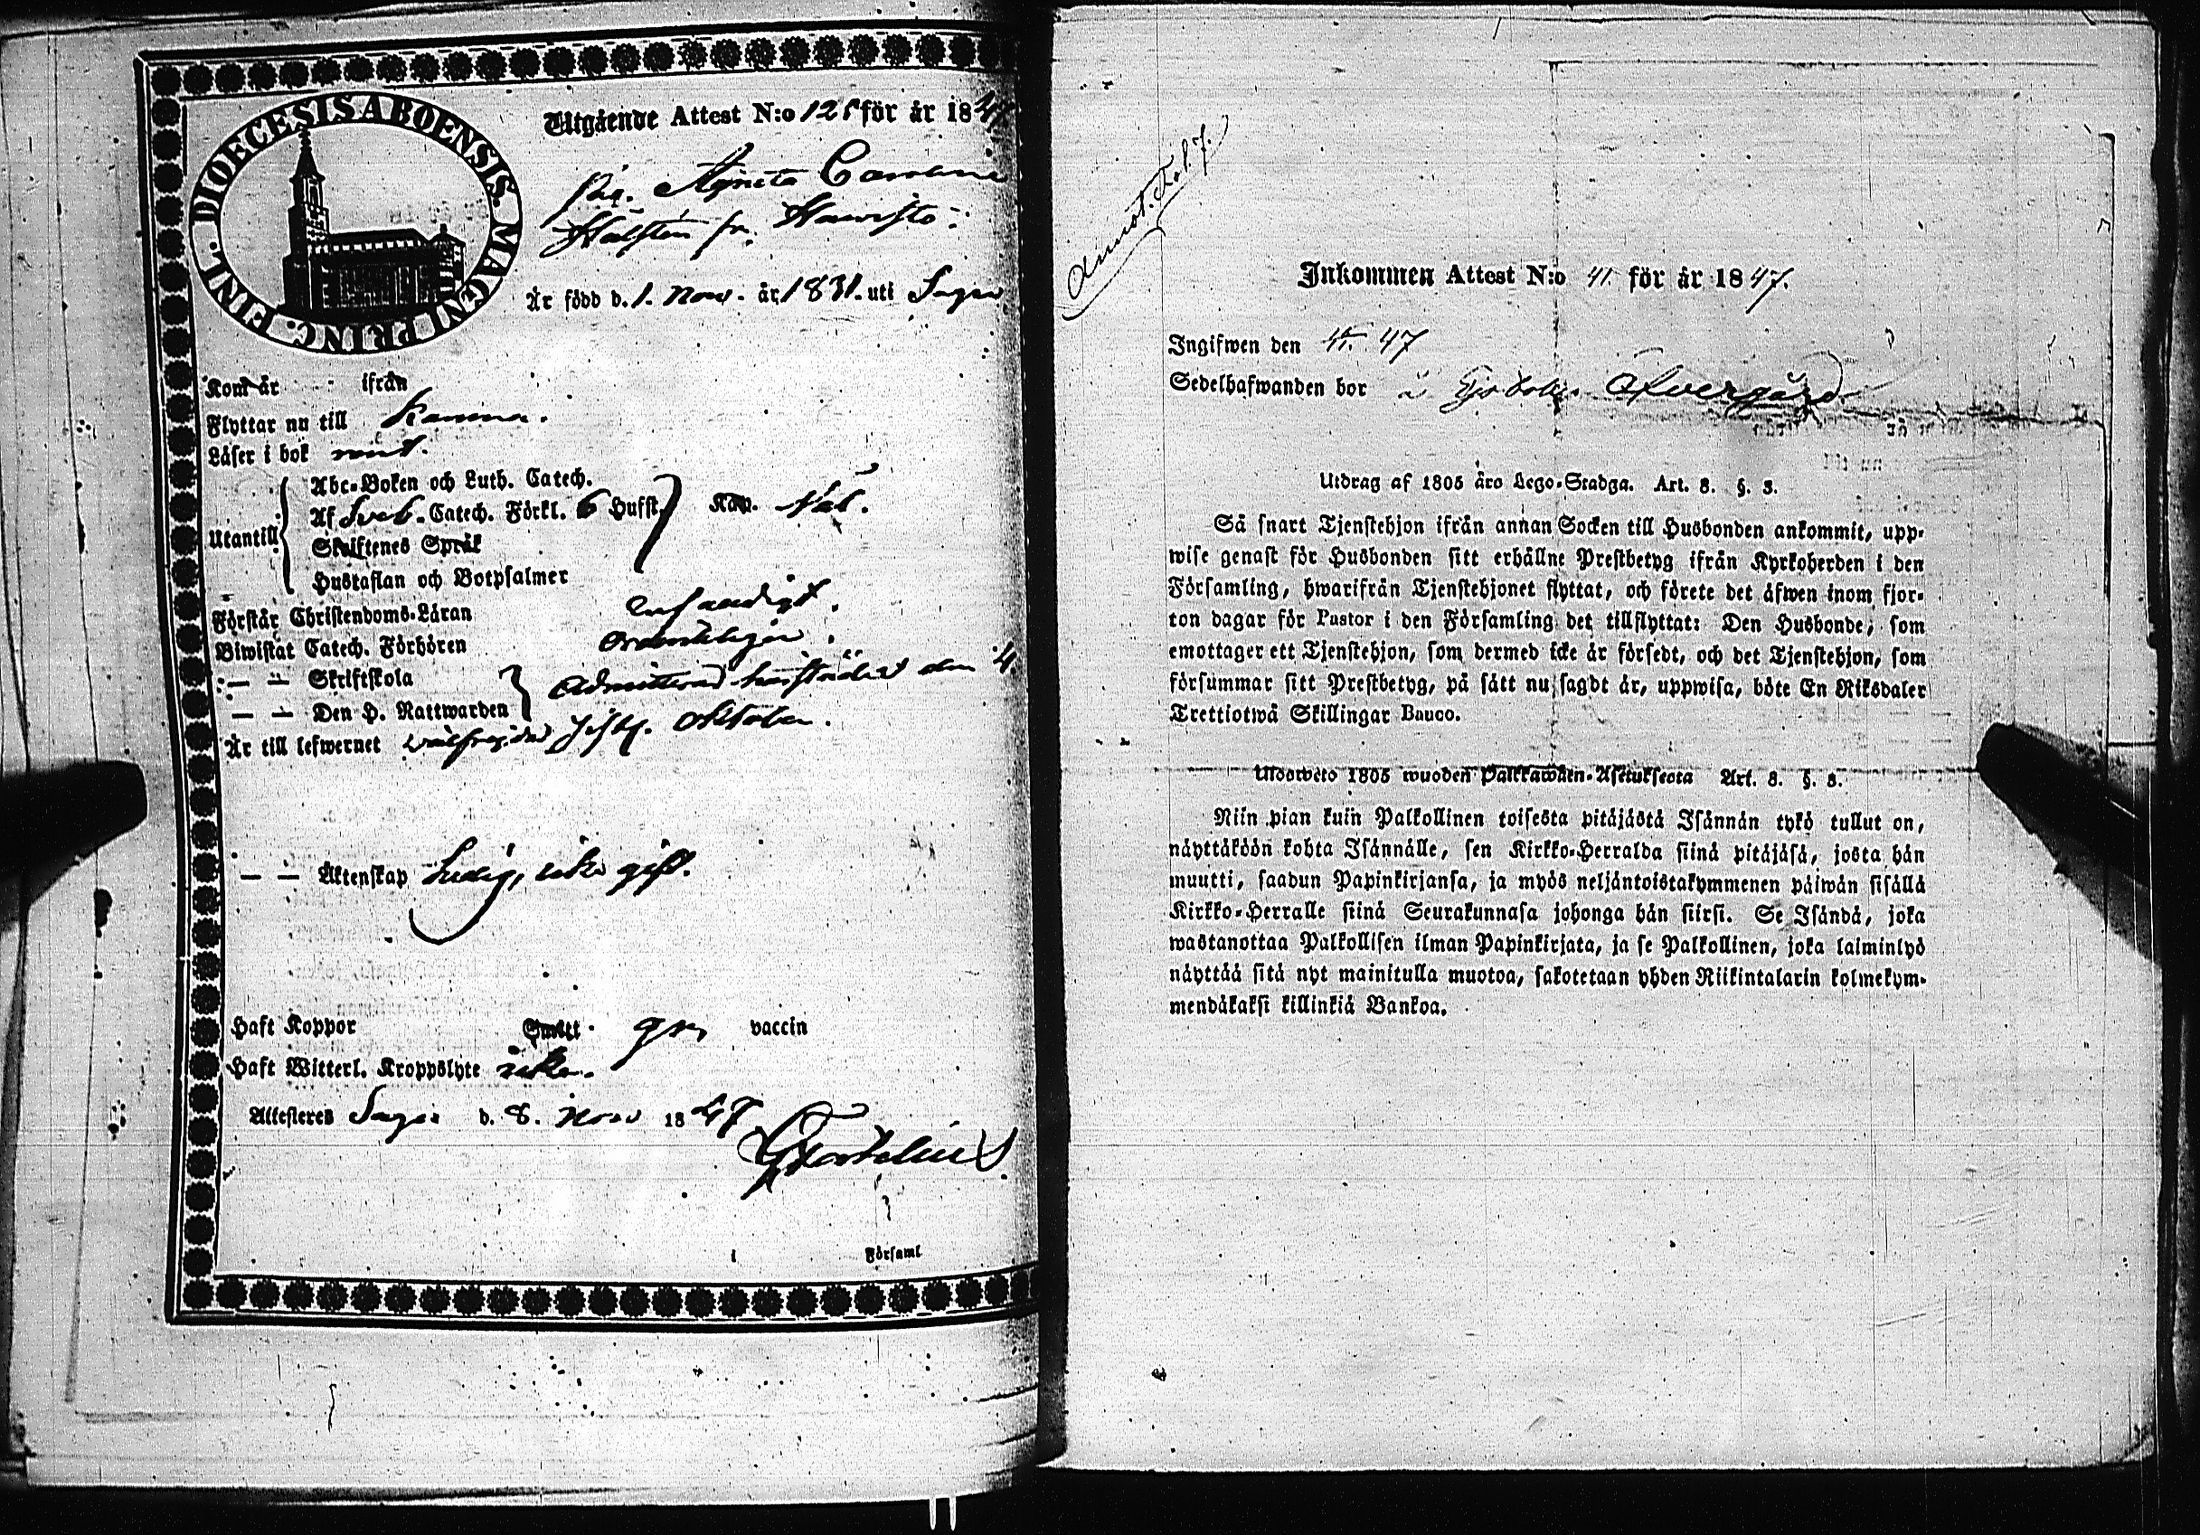 DIOECESIS ABOENSIS. MAGNI PRINC. FINL.
Utgående Attest N:o 121 för år 1847
Pig. Agneta Carolina
Hälstén fr. Hauristo.
Är född d. 1. Nov. år 1831. uti Sagu
Kom år ifrån
Flyttar nu till Kamma.
Läser i bok rent.
Utantill
Abc-Boken och Luth. Catech.
Af Sveb. Catech. Förkl. 6 Hufst. Kap. Nöl.
Skriftenes Språk
Hustaflan och Botpsalmer
Förstår Christendoms-Läran
Biwistat Catech. Förhören ordentligen.
— — Skriftskola Admitterad härstädes den 4
— — Den H. Nattwarden
Är till lefwernet wälfrejdad sistl. Oktober.
— — Äktenskap ledig, icke gift.
Haft Koppor Smitt. gm vaccin
Haft Witterl. Kroppslyte icke.
Attesteras Sagu d. 8. Nov 1847
i Församl
Annot. Fol. 7.
Inkommen Attest N:o 41 för år 1847.
Ingifwen den 47
Sedelhafwanden bor å Öfvergård
Utdrag af 1805 års Lego-Stadga. Art. 8. §. 3.
Så snart Tjenstehjon ifrån annan Socken till Husbonden ankommit, upp-
wise genast för Husbonden sitt erhållne Prestbetyg ifrån Kyrkoherden i den
Församling, hwarifrån Tjenstehjonet flyttat, och förete det äfwen inom fjor-
ton dagar för Pastor i den Församling det tillflyttat: Den Husbonde, som
emottager ett Tjenstehjon, som dermed icke är försedt, och det Tjenstehjon, som
försummar sitt Prestbetyg, på sätt nu sagdt är, uppwisa, böte En Riksdaler
Trettiotwå Skillingar Banco.
Ulosweto 1805 wuoden Palkkawäen-Asetuksesta Art. 8. §. 3.
Niin pian kuin Palkollinen toisesta pitäjästä Isännän tykö tullut on,
näyttäköön kohta Isännälle, sen Kirkko-Herralda siinä pitäjäsä, josta hän
muutti, saadun Papinkirjansa, ja myös neljäntoistakymmenen päiwän sisällä
Kirkko-Herralle siinä Seurakunnasa johonga hän siirsi. Se Isändä, joka
wastanottaa Palkollisen ilman Papinkirjata, ja se Palkollinen, joka laiminlyö
näyttää sitä nyt mainitulla muotoa, sakotetaan yhden Riikintalarin kolmekym-
mendäkaksi killinkiä Bankoa.